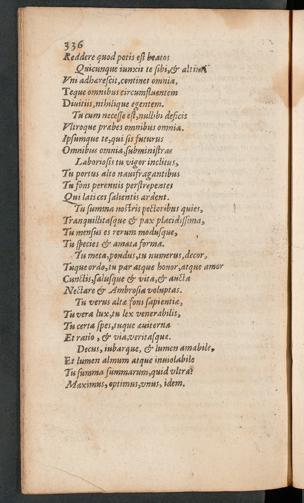 336
Reddere quod potis est beatos
Quicunque iunxit te sibi, & altius
Vni adhærescit, continet omnia,
Teque omnibus circumfluentem
Diuitiis, nihilique egentem.
Tu cum necesse est, nullibi deficis
Vltroque præbes omnibus omnia.
Ipsumque te, qui sis futurus
Omnibus omnia, subministras
Laboriosis tu vigor inclitus,
Tu portus alto naufragantibus
Tu fons perennis perstrepentes
Qui latices salientis ardent.
Tu summa nostris pectoribus quies,
Tranquillitasque & pax placidissima,
Tu mensus es rerum modusque,
Tu species & amata forma.
Tu meta, pondus, tu numerus, decor,
Tuque ordo, tu pax atque honor, atque amor
Cunctis, salusque & vita, & aucta
Nectare & Ambrosia voluptas.
Tu verus alta fons sapientiæ,
Tu vera lux, tu lex venerabilis,
Tu certa spes, tuque auiterna
Et ratio, & via, veritasque.
Decus, iubarque, & lumen amabile,
Et lumen almum atque inuiolabile
Tu summa summarum, quid vltra?
Maximus, optimus, vnus, idem.